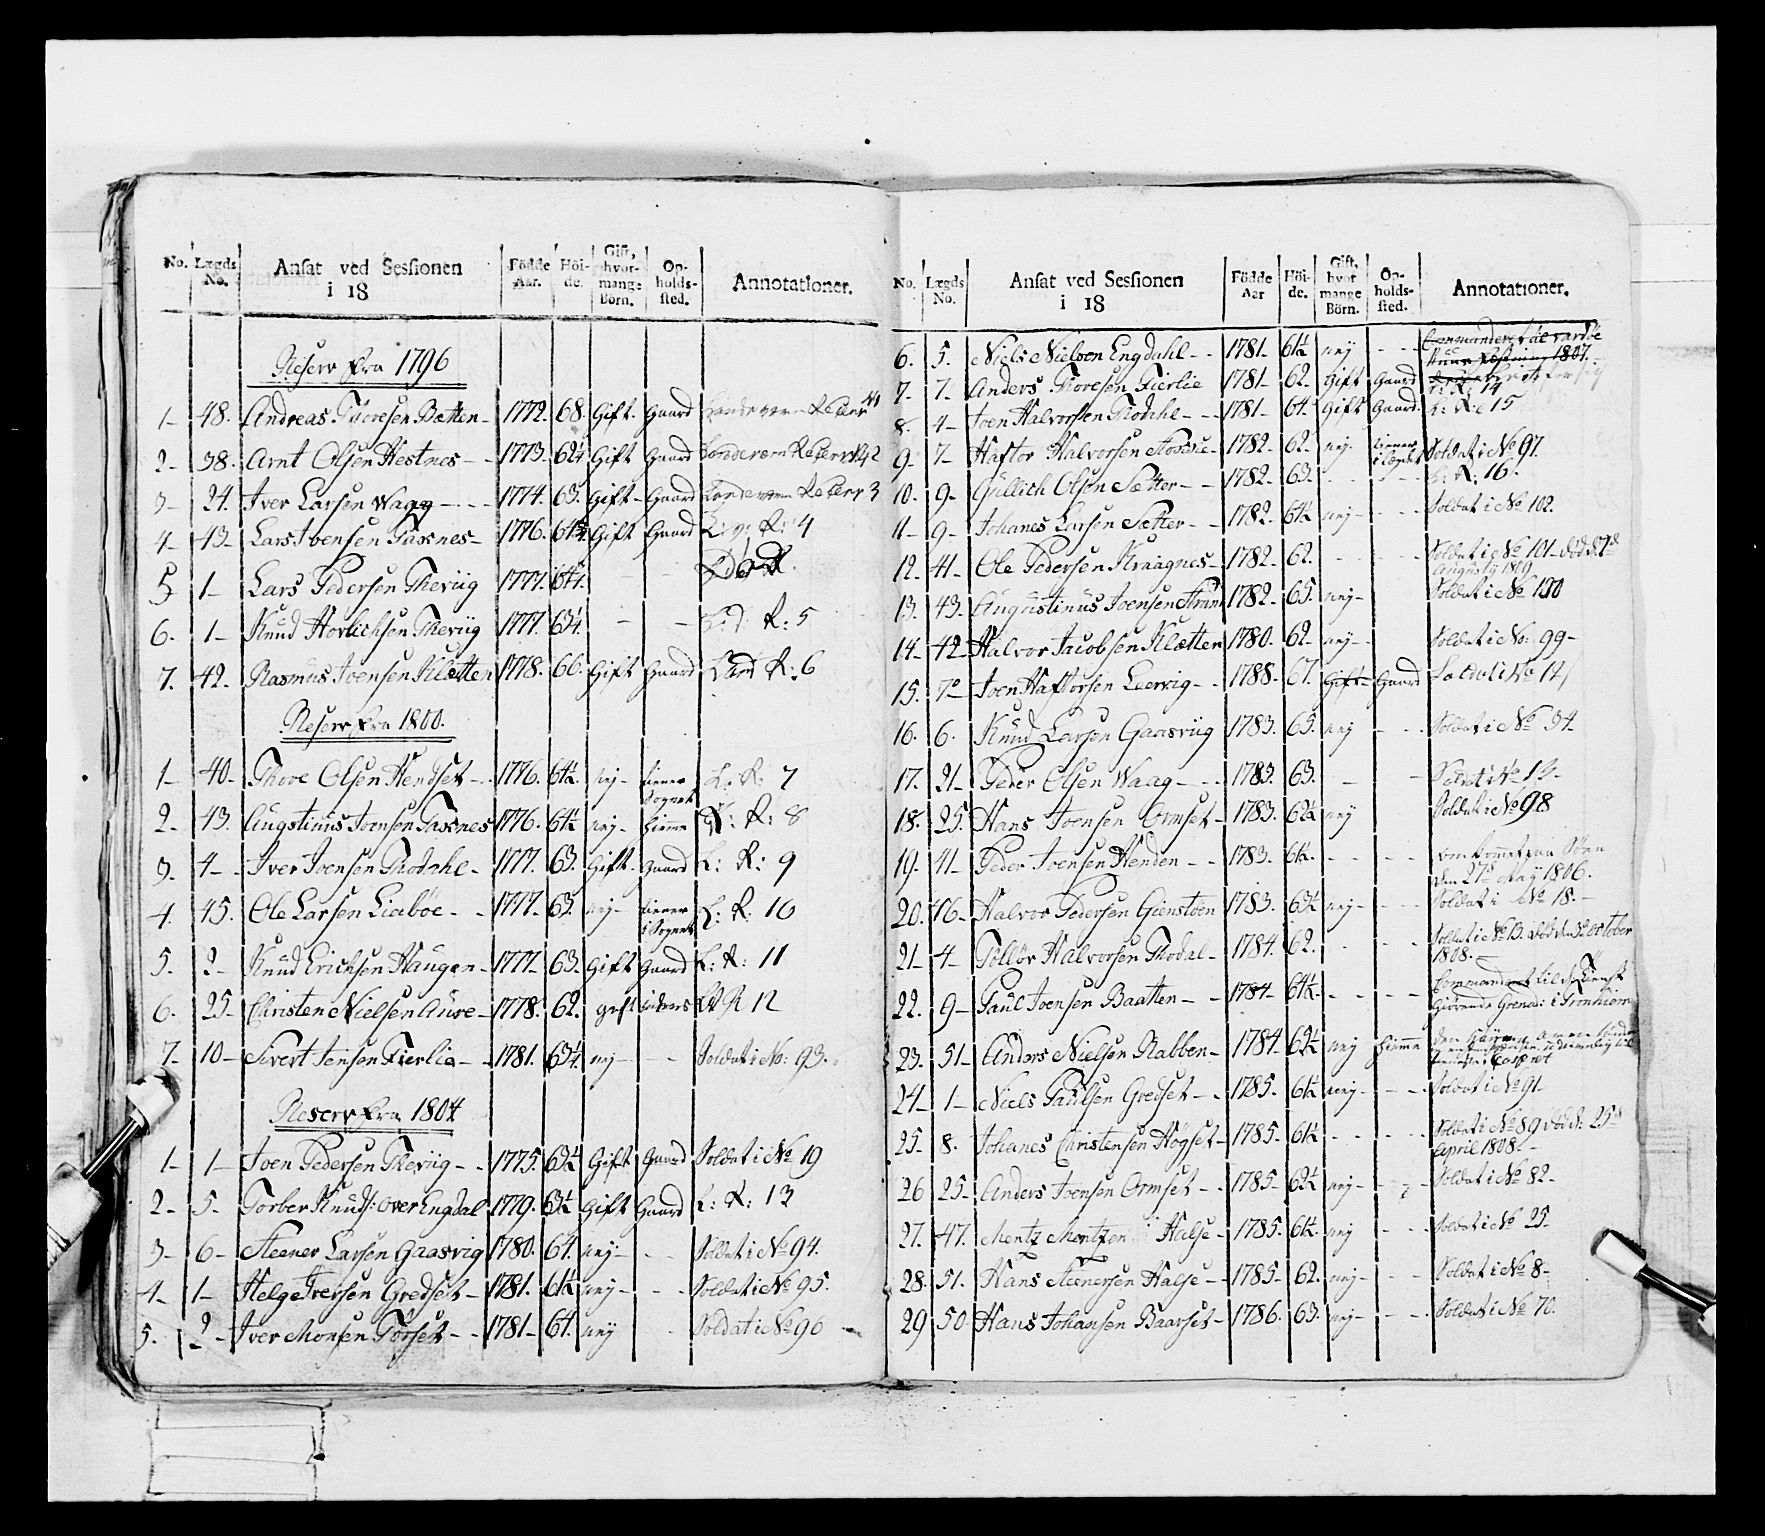 No. Lægds No. Ansat ved Sessionen i 18 Födde Aar. Höide. Gift, hvormange Börn. Opholdssted. Annotationer.
Reserv fra 1796
1- 48. Andreas Thoresen Bætten- 1772. 68. Gift. Gaard Landeværn Reserv
2- 38. Arnt Olsen Hestnes- 1773. 62½ Gift Gaard Landeværn Reserv 2
3- 24. Iver Larsen Waag 1774. 63. Gift- Gaard Landeværn Reserv 3
4- 43- Lars Ivensen Tassnes- 1776. 64½ Gift Gaard L: v: R: 4
5- 1- Lars Pedersen Therüg 1777. 64½.
6. 1- Knud Horlichsen Therüg 1777. 63½. - - L: d: R: 5
7. 42- Rasmus Joensen Klætten 1778. 66. Gift Gaard Land R: 6
Reserv fra 1800.
1- 40- Thore Olsen Hendset- 1776. 64½. nej- tiener Sognet L: R: 7
2- 43. Augstinus Joensen Tassnes 1776. 64½ nej- hiemme L: R: 8
3- 4- Iver Joensen Thodahl- 1777. 63. Gift- Gaard L: R: 9
4. 45. Ole Larsen Liabøe- 1777- 63. nej- tiener i Sognet L: R: 10
5. 2- Knud Erichsen Haugen- 1777- 63. Gift Gaard L: R: 11
6. 25- Christen Nielsen Aure- 1778. 62. gift inders L R 12
7- 10- Sivert Jensen Fierlie- 1781. 63½. nej- - - Soldat i No: 93.
Reserv fra 1804
1- 1- Joen Pedersen Therüg- 1775. 63½ Gift Gaard Soldat i No 19
2- 5- Torber Knuds: over Engdal 1779. 63½ Gift Gaard L: R: 13
3- 6- Steener Larsen Gaasvig 1780. 64. nej- - - Soldat i No 94.
4- 1- Helge Iversen Gredset- 1781. 61½ nej- - - Soldat i No 95.
5. 2- Iver Monsen Torset- 1781- 64. nej - Soldat i No 96
No. Lægds No. Ansat ved Sessionen i 18 Födde Aar Höide. Gift, hvor mange Börn. Opholdssted. Annotationer.
6. 5. Niels Nielsen Engdahl- 1781- 61½ nej - - Commanderet 1807.
7. 7- Anders Thoresen Fierlie 1781- 62. Gift Gaard L: R: 14
8. 4- Joen Halvorsen Thodahl- 1781- 64. Gift Gaard. L: R: 15
9- 7- Haftor Halvorsen 1782- 62. nej. tiener i Lægdet Soldat i No 97.
10. 9- Gullich Olsen Sætter- 1782- 63. - - L: R: 16.
11- 9- Johanes Larsen Sætter- 1782. 64½ nej- - - Soldat i No 102.
12. 41- Ole Pedersen Kraagnes- 1782- 62. - - Soldat i No 101- død d: 1d Augusty 1809
13. 43. Augustinus Joensen 1782- 65. nej- Soldat i No 100
14- 42- Halvor Jacobsen Klætten 1780. 62- nej- Soldat i No: 99-
15. 7- Joen Haftorsen Leervig- 1788. 67. Gift- Gaard Soldat i No
16. 6. Knud Larsen Gaasvüg 1783. 65. nej - - Soldat i No 34-
17. 21- Peder Olsen Waag- 1783. 63. - - Soldat i No 13-
18. 25. Hans Joensen Ormset- 1783. 62½ nej Soldat i No 98
19. 41- Peder Joensen Henden- 1783. 61½. - - omkommet paa Søen den 27de May 1806.
20. 16- Halvor Pedersen Gienstøen 1783. 63½ nej- - - Soldat i No 18.-
21- 4- Tollør Halvorsen Thodal- 1784. 62. - - Soldat i No 13. død den 3d october 1808.-
22. 9- Paul Joensen Baatten- 1784- 64½. - - Commanderet til d: Tienst Giørende Grenad: i Tronhiem
23. 51- Anders Nielsen Rabben- 1784. 62½ nej hiemme
24- 1- Niels Paulsen Gredset- 1785. 61½ nej- - - Soldat i No 91-
25- 8. Johanes Christensen Høgset- 1785- 61½ - - Soldat i No 89 død d: 25d April 1808-
26 25- Anders Joensen Ormset- 1785- 62½ nej- - - Soldat i No 82-
27. 47. Mentz Mentzen Halse- 1785. 61½ nej - - Soldat i No 25-
28. 51. Hans Steenersen Halse- 1785- 62. nej- - - Soldat i No 8-
29 50 Hans Johansen Baarset- 1786. 63. nej- - - Soldat i No 70.